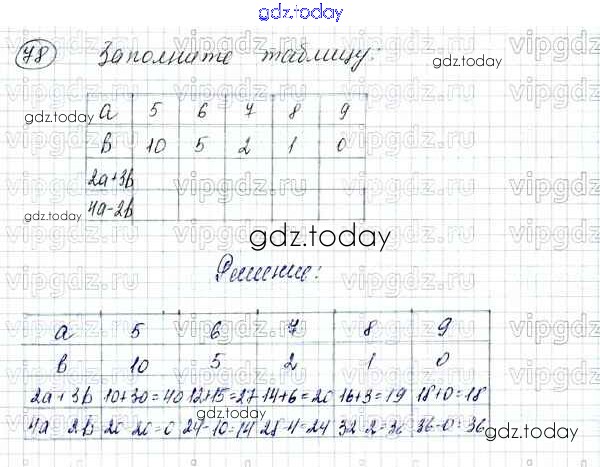 gdz.today
78 Заполните таблицу:
a 5 6 7 8 9
b 10 5 2 1 0
2a+3b
4a-2b
gdz.today
Решение:
a 5 6 7 8 9
b 10 5 2 1 0
2a+3b 10+30=40 12+15=27 14+6=20 16+3=19 18+0=18
4a-2b 20-20=0 24-10=14 28-4=24 32-2=30 36-0=36
vipgdz.ru